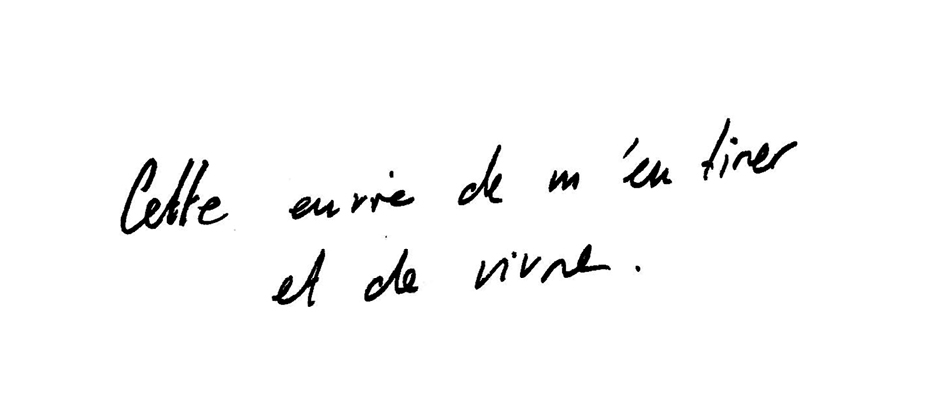 Cette envie de m'en tirer
et de vivre.